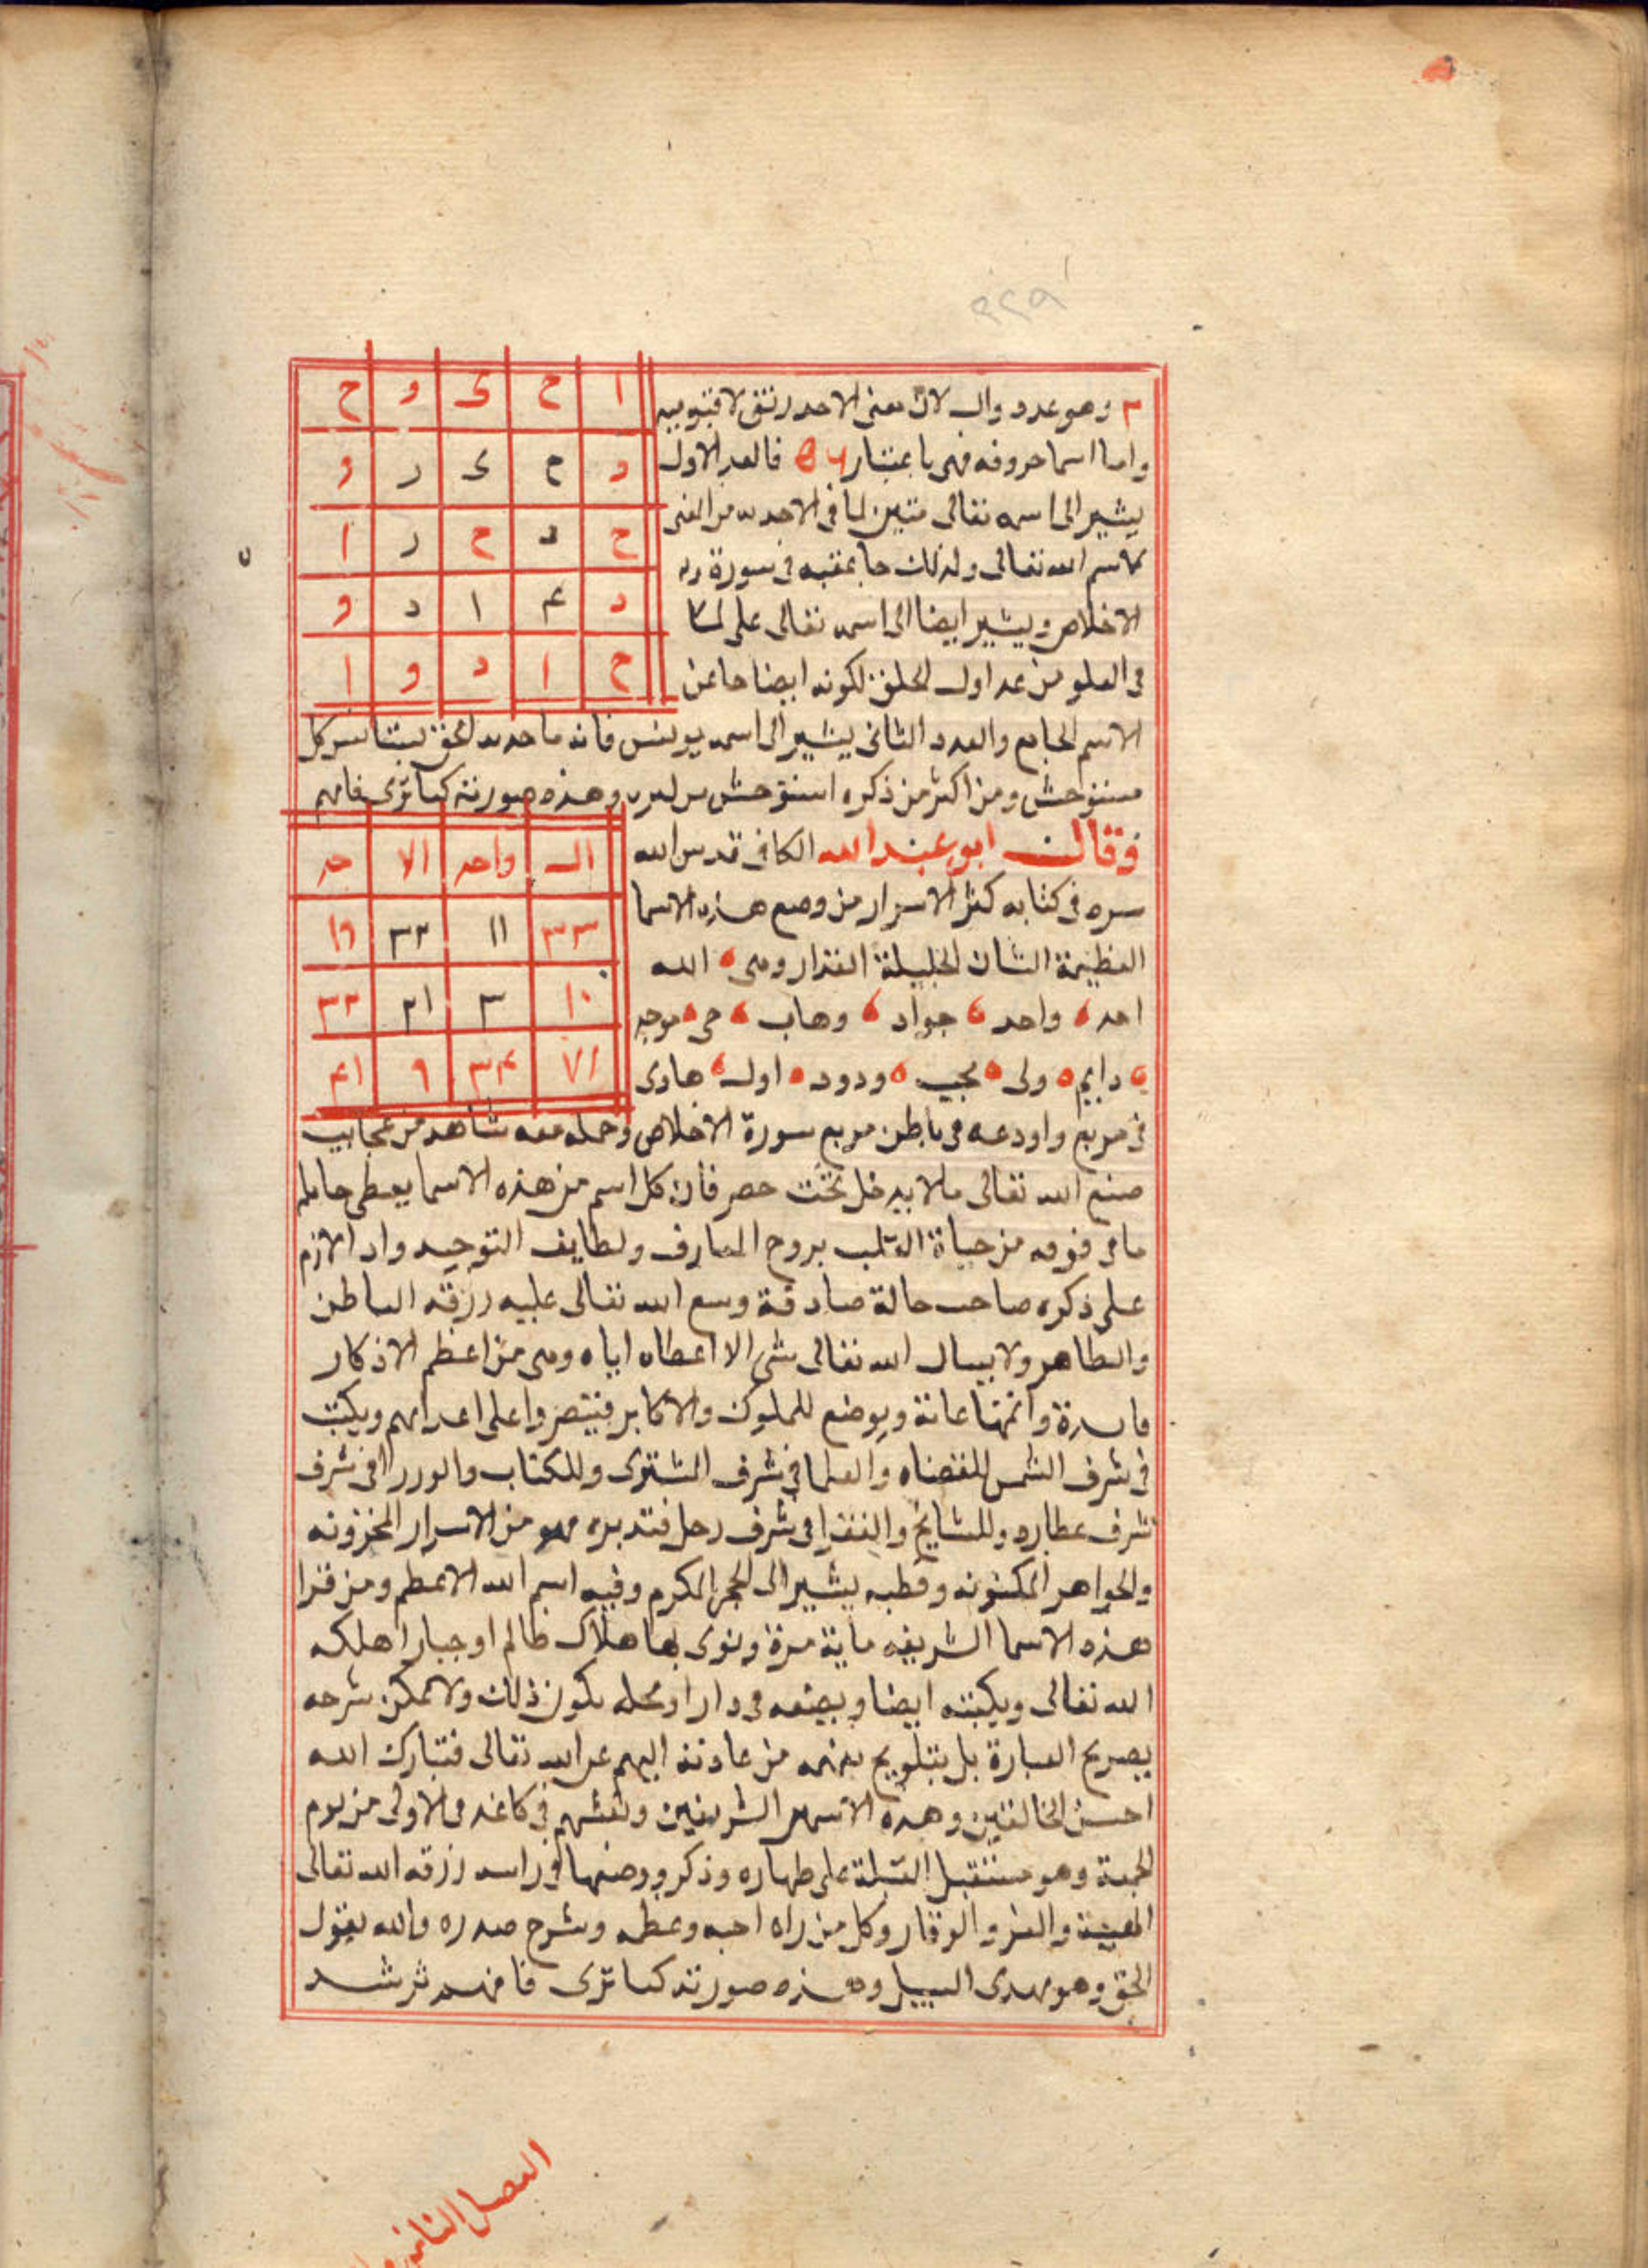 ٢٢٩
وهو عدد والـ لان معنى الاحد رتق لا فتق فيه
واما اسما حروفه فهى باعتبار فالعدد الاول
يشير الى اسمه تعالى متين لما فى الاحديه من المعنى
كاسم الله تعالى ولذلك جا عقبه فى سورة
الاخلاص ويشير ايضا الى اسمه تعالى على لما
فى العلو من عد اول الخلق لكونه ايضا جا عن
الاسم الجامع والعدد الثانى يشير الى اسمه يونس فانه ما حديد لحق يستانس كل
مستوحش ومن اكثر من ذكره استوحش وهذه صورته كما ترى فافهم
ا ح ى و ح
د ح ى د و
ح د ح د ا
د ع ا د و
ح ا د و ا
وقال ابو عبد الله الكافى قدس الله
سره فى كتابه كنز الاسرار من وضع هذه الاسما
العظيمة الشان الجليلة المقدار وهى الله
احد واحد جواد وهاب حى موجد
دايم ولى مجيب ودود اول هادى
الـ واحد الا حد
٣٣ ١١ ٣٢ ١٦
١٠ ٣ ٢١ ٣٣
٣٤ ٩ ٤١
فى مربع واودعه فى باطن مربع سورة الاخلاص وحمله معه شاهد من عجايب
صنع الله تعالى مالا يدخل تحت حصر فان كل اسم من هذه الاسما يعطى حامله
ما فى قوته من حياة القلب بروح المعارف ولطايف التوحيد واد الازم
على ذكره صاحب حالة صادقة وسع الله تعالى عليه رزقه الباطن
والظاهر ولا يسال الله تعالى شى الا اعطاه اياه وهى من اعظم الاذكار
فايدة واتمها عانة ويوضع للملوك والاكابر فينتصروا على اعدايهم ويكتب
فى شرف الشمس للقضاه والعلما فى شرف المشترى وللكتاب والوزرا فى شرف
شرف عطارد وللمشايخ والفقرا فى شرف زحل فتدبره فهو من الاسرار المخزونه
والجواهر المكنونه وقطبه يشير الى الحجر المكرم وفيه اسم الله الاعظم ومن قرا
هذه الاسما الشريفه ماية مرة ونوى بها هلاك ظالم او جبار اهلكه
الله تعالى ويكتبه ايضا ويضعه فى دار او محله يكون ذلك ولا يمكن شرحه
بصريح العبارة بل بتلويح يفهمه من عادته الفهم عن الله تعالى فتبارك الله
احسن الخالقين وهذه الاسمين الشريفين ونقشهم فى كاغد فى الاولى من يوم
الجمعة وهو مستقبل القبلة على طهاره وذكر ووضعها فى راسه رزقه الله تعالى
الهيبة والعز والوقار وكل من راه احبه وعظمه وشرح صدره والله يقول
الحق وهو يهدى السبيل وهذه صورته كما ترى فافهم ترشد
الفصل الثانى